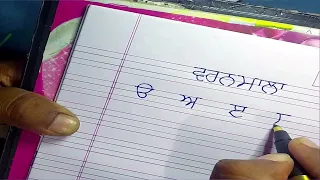 ਵਰਨਮਾਲਾ
ੳ ਅ ੲ